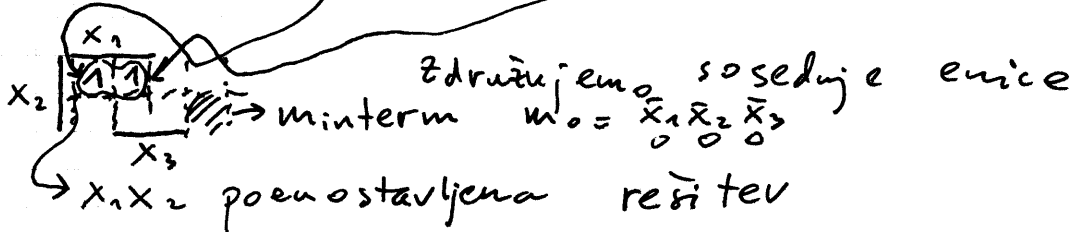 x₁
x₂ 1 1 Združujemo sosednje enice
minterm m₀ = x̄₁ x̄₂ x̄₃
x₃ 0 0 0
x₁x₂ poenostavljena rešitev